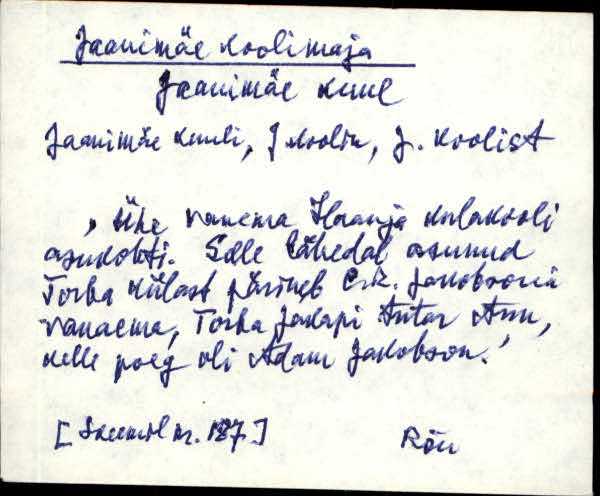 Jaanimäe koolimaja
Jaanimäe kuul
Jaanimäe kuuli, J koolin, J. koolist
„Ühe vanema Haanja külakooli
asukoht. Selle lähedal asunud
Torba külast põlineb C.R. Jakobsoni
vanaema, Torba Jakapi Antar Ann,
kelle poeg oli Adam Jakobson.'
[Skeemil nr. 187] Rõu